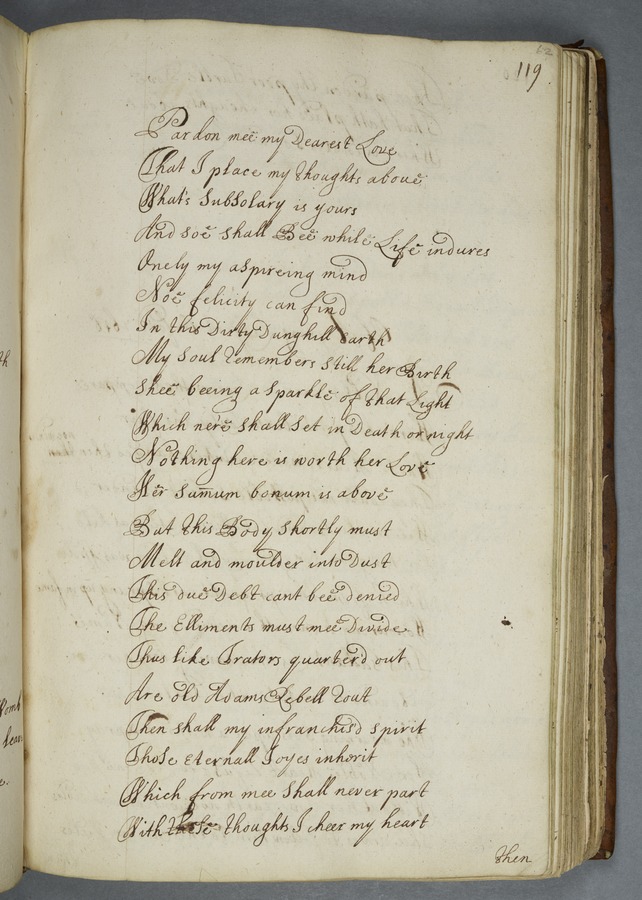 62
119
Pardon mee my Dearest Love
That I place my thoughts above
What's SubSolary is yours
And soe shall Bee while Life indures
Onely my aspireing mind
Noe felicity can find
In this Dirty Dunghill Earth
My Soul remembers still her Birth
Shee beeing a Sparkle of that Light
Which nere shall Set in Death or night
Nothing here is worth her Love
Her sum̄um bonum is above
But this Body shortly must
Melt and moulder into Dust
This due Debt cant bee denied
The Elliments must mee Divide
Thus like Trators quarterd out
Are old Adams Rebell rout
Then shall my infranchisd spirit
Those eternall Joyes inherit
Which from mee shall never part
With these thoughts I cheer my heart
then